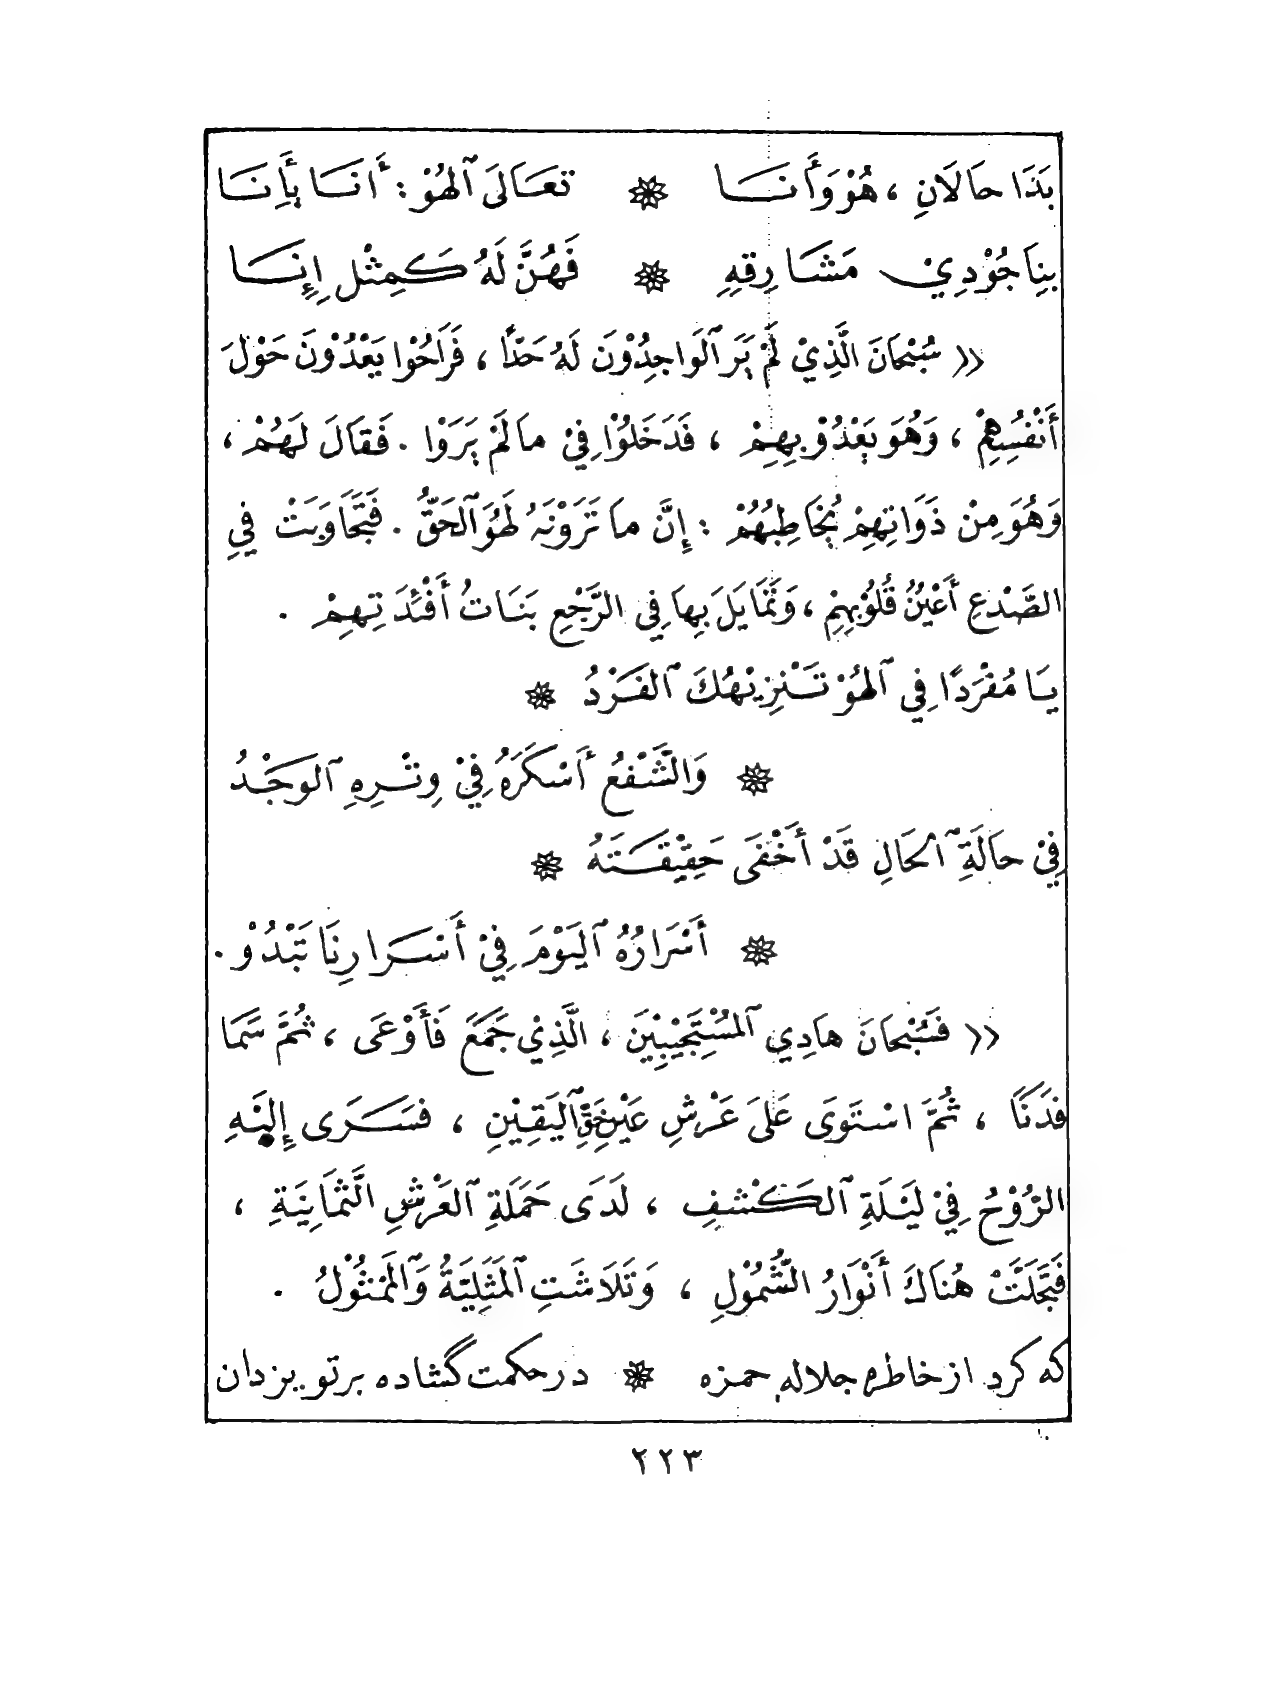 بَدَا حَالَانِ ، هُوْ وَأَنَا ۞ تَعَالَى ٱلهُوْ : أَنَا بِأَنَا
بِنِا جُوْدِيْ مَشَارِقِهِ ۞ فَهُنَّ لَهُ كَمِثْلِ إِنَا
« سُبْحَانَ الَّذِيْ لَمْ يَرَ ٱلوَاجِدُوْنَ لَهُ حَدًّا ، فَرَاحُوْا يَعْدُوْنَ حَوْلَ
أَنْفُسِهِمْ ، وَهُوَ يَعْدُوْ بِهِمْ ، فَدَخَلُوْا فِيْ مَا لَمْ يَرَوْا . فَقَالَ لَهُمْ ،
وَهُوَ مِنْ ذَوَاتِهِمْ يُخَاطِبُهُمْ : إِنَّ مَا تَرَوْنَهُ لَهُوَ ٱلحَقُّ . فَتَجَاوَبَتْ فِي
الصَّدْعِ أَعْيُنُ قُلُوْبِهِمْ ، وَتَمَايَلَ بِهَا فِي الرَّجْعِ بَنَاتُ أَفْئِدَتِهِمْ .
يَا مُفْرَدًا فِي ٱلهُوْ تَنْزِيْهُكَ ٱلفَرْدُ ۞
۞ وَالشَّفْعُ أَسْكَرَهُ فِيْ وِتْرِهِ ٱلوَجْدُ
فِيْ حَالَةِ ٱلحَالِ قَدْ أَخْفَى حَقِيْقَتَهُ ۞
۞ أَسْرَارُهُ ٱليَوْمَ فِيْ أَسْرَارِنَا تَبْدُوْ .
« فَسُبْحَانَ هَادِي ٱلمُسْتَجِيْبِيْنَ ، الَّذِيْ جَمَعَ فَأَوْعَى ، ثُمَّ سَمَا
فَدَنَا ، ثُمَّ اسْتَوَى عَلَى عَرْشِ عَيْنِ حَقِّ ٱليَقِيْنِ ، فَسَرَى إِلَيْهِ
الرُّوْحُ فِيْ لَيْلَةِ ٱلكَشْفِ ، لَدَى حَمَلَةِ ٱلعَرْشِ الثَّمَانِيَةِ ،
فَتَجَلَّتْ هُنَاكَ أَنْوَارُ الشُّمُوْلِ ، وَتَلَاشَتِ ٱلمَثَلِيَّةُ وَٱلمَثُوْلُ .
كه كرد از خاطرهِ جلاله حمزه ۞ در حكمت گشاده بر تو يزدان
٢٢٣